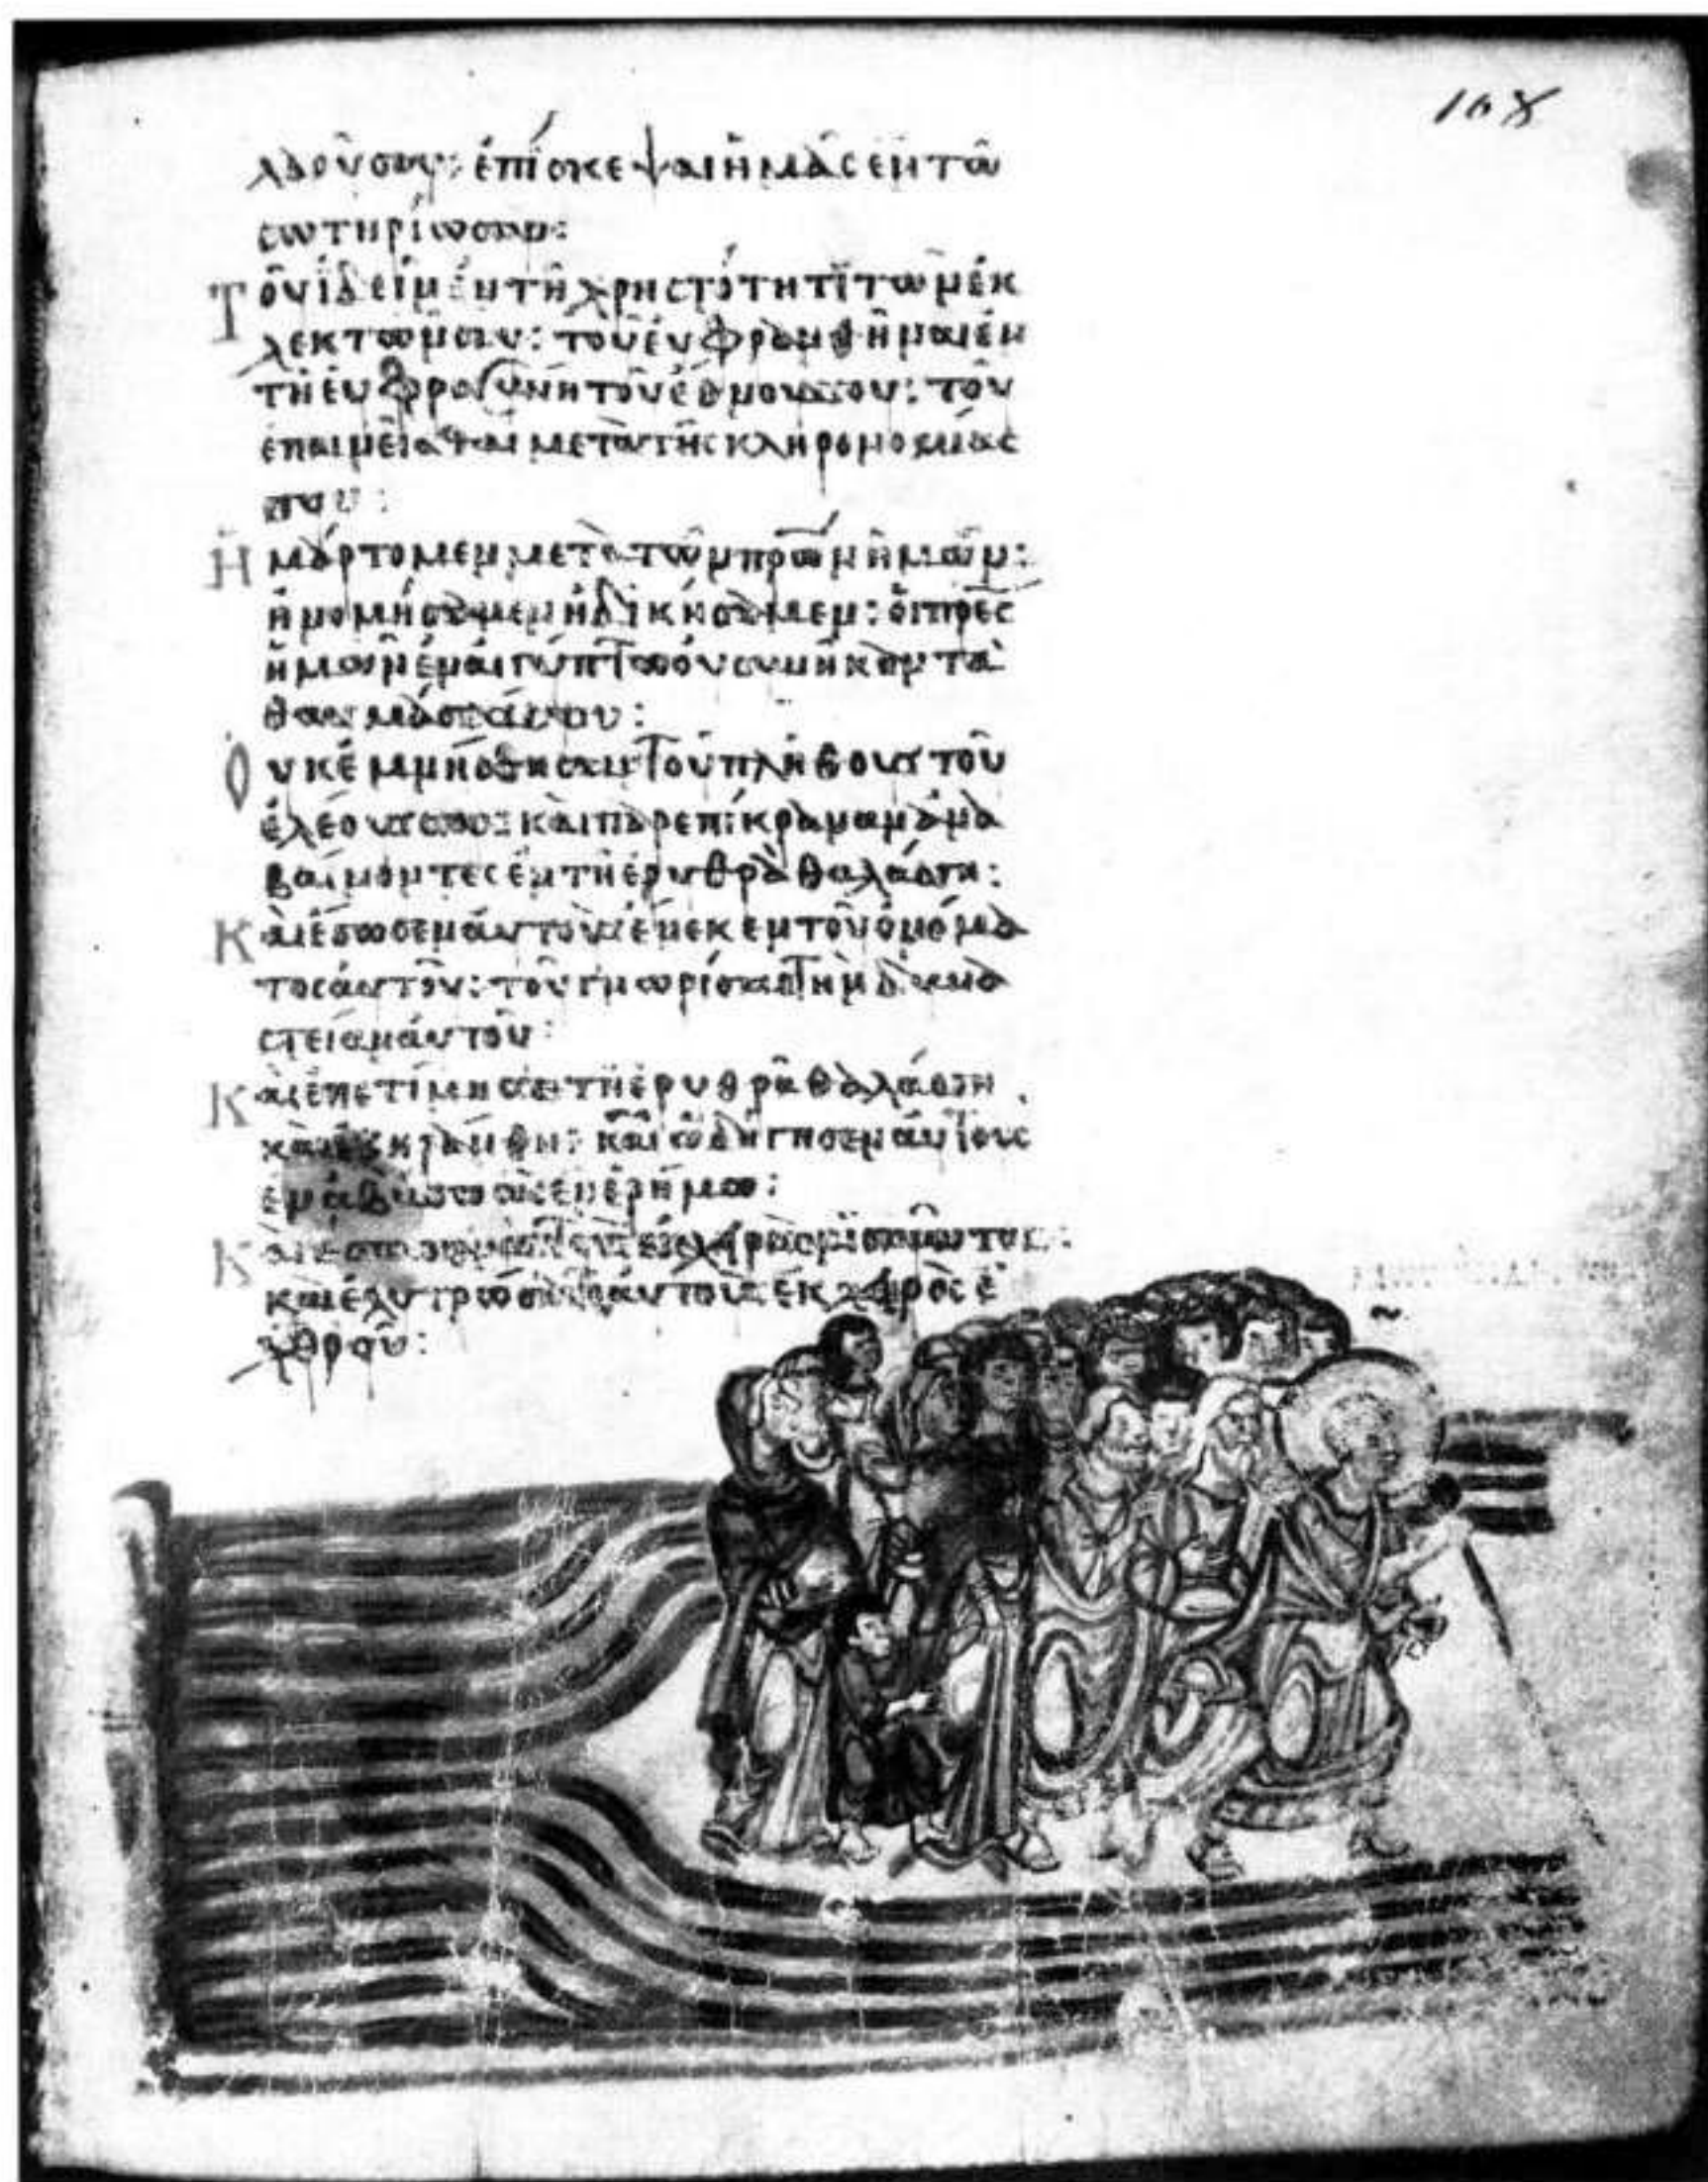 108
λαοῦ σου· ἐπίσκεψαι ἡμᾶς ἐν τῶ
σωτηρίω σου:
Τοῦ ἰδεῖν ἐν τῆ χρηστότητι τῶν ἐκ
λεκτῶν σου: τοῦ ἐυφρανθῆναι ἐν
τῆ ἐυφροσύνη τοῦ ἔθνους σου: τοῦ
ἐπαινεῖσθαι μετὰ τῆς κληρονομίας
σου:
Ἡμάρτομεν μετὰ τῶν πρων ἡμῶν:
ἠνομήσαμεν ἠδικήσαμεν: ὁι πρες
ἡμῶν ἐν αιγύπτω ὀυ συνῆκαν τὰ
θαυμάσιά σου:
Ὀυκ ἐμνήσθησαν τοῦ πλήθους τοῦ
ἐλέους σου: καὶ παρεπίκραναν ἀνα
βαίνοντες ἐν τῆ ἐρυθρᾶ θαλάσση:
Καὶ ἔσωσεν ἀυτοὺς ἕνεκεν τοῦ ὀνόμα
τος ἀυτοῦ: τοῦ γνωρίσαι τὴν δυνα
στείαν ἀυτοῦ:
Καὶ ἐπετίμησε τῆ ἐρυθρᾶ θαλάσση
καὶ ἐξηράνθη: καὶ ὡδήγησεν ἀυτοὺς
ἐν ἀβύσσω ὡς ἐν ἐρήμω:
Καὶ ἔσωσεν ἀυτοὺς ἐκ χειρὸς μισοῦντος:
καὶ ἐλυτρώσατο ἀυτοὺς ἐκ χειρὸς ἐ
χθροῦ: